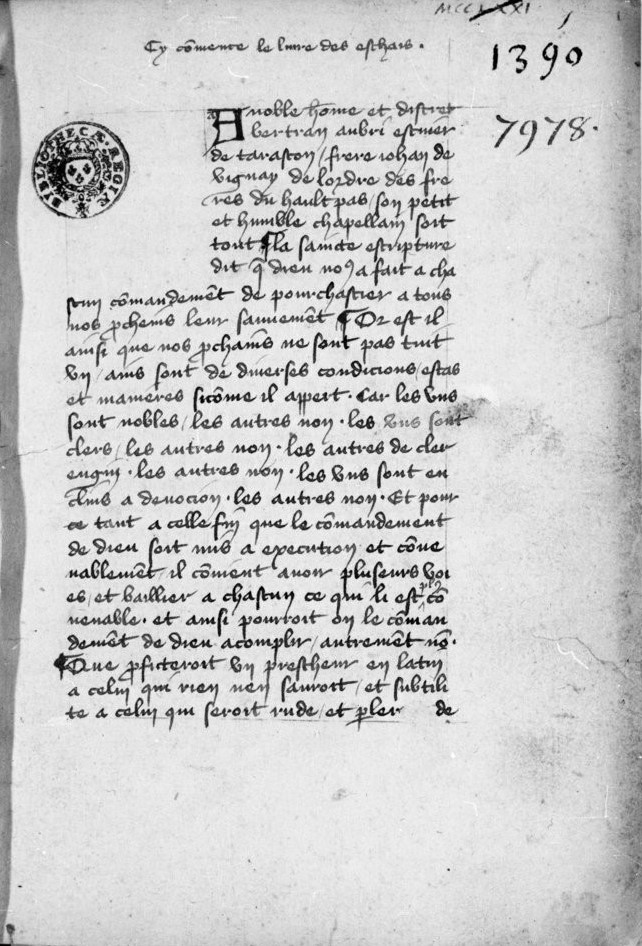 MCCLXXI
Cy cōmence le liure des eschais.
1390
7978.
BIBLIOTHECÆ REGIÆ
A noble hōme et discret
bertran aubri escuier
de tarascon / frere iohan de
vignay de lordre des fre
res du hault pas / son petit
et humble chapellain soit
tout ¶ la saincte escripture
dit q̄ dieu noꝰ a fait a cha
scun cōmandemēt de pourchascier a tous
nos ꝓchenis leur sauuement ¶ Or est il
ainsi que nos ꝓchains ne sont pas tuit
vn / ains sont de diuerses condicions / estas
et manieres sicōme il appert. Car les vns
sont nobles / les autres non. les vns sont
clers / les autres non. les autres de cler
engin. les autres non. les vns sont en
clins a deuocion. les autres non. Et pour
ce tant a celle fin que le cōmandement
de dieu soit mis a execution et cōue
nablement / il cōuient auoir pluseurs voi
es / et baillier a chascun ce qui li est plꝰ cō
uenable. et ainsi pourroit on le cōman
dement de dieu acomplir / autrement nō.
¶ Que ꝓfiteroit vn prescheur en latin
a celui qui rien nen sauroit / et subtili
te a celui qui seroit rude / et ꝑler de